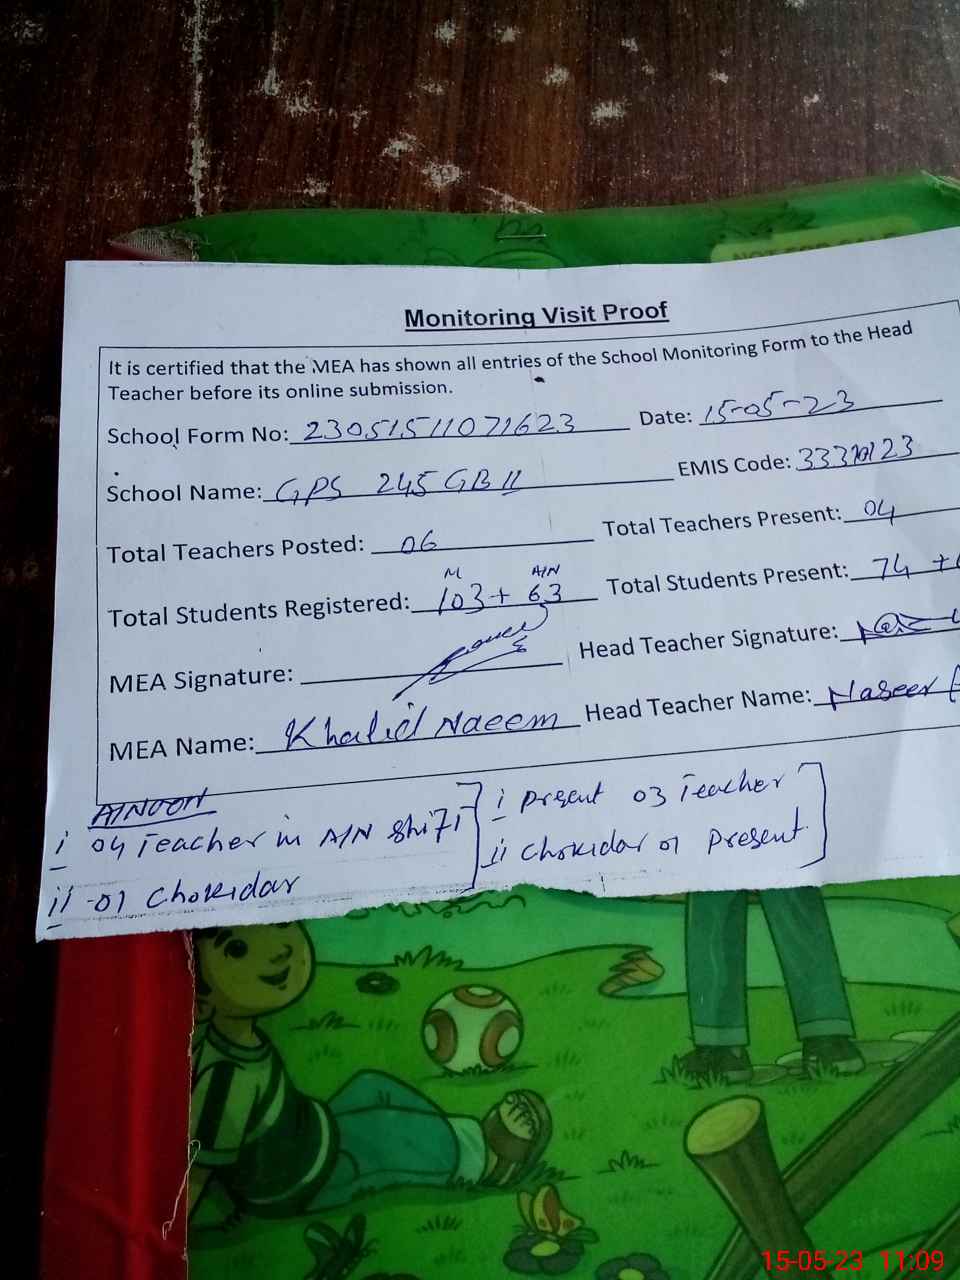 Monitoring Visit Proof
It is certified that the MEA has shown all entries of the School Monitoring Form to the Head
Teacher before its online submission.
School Form No: 23051511071623 Date: 15-05-23
School Name: GPS 245 GB II EMIS Code: 33310123
Total Teachers Posted: 06 Total Teachers Present: 04
M A/N
Total Students Registered: 103+ 63 Total Students Present: 74 +
MEA Signature: Head Teacher Signature:
MEA Name: Khalid Naeem Head Teacher Name: Naseer
A/NOON
i 04 Teacher in A/N Shift i present 03 Teacher
ii -01 Chokidar ii Chokidar 01 Present.
15-05-23 11:09